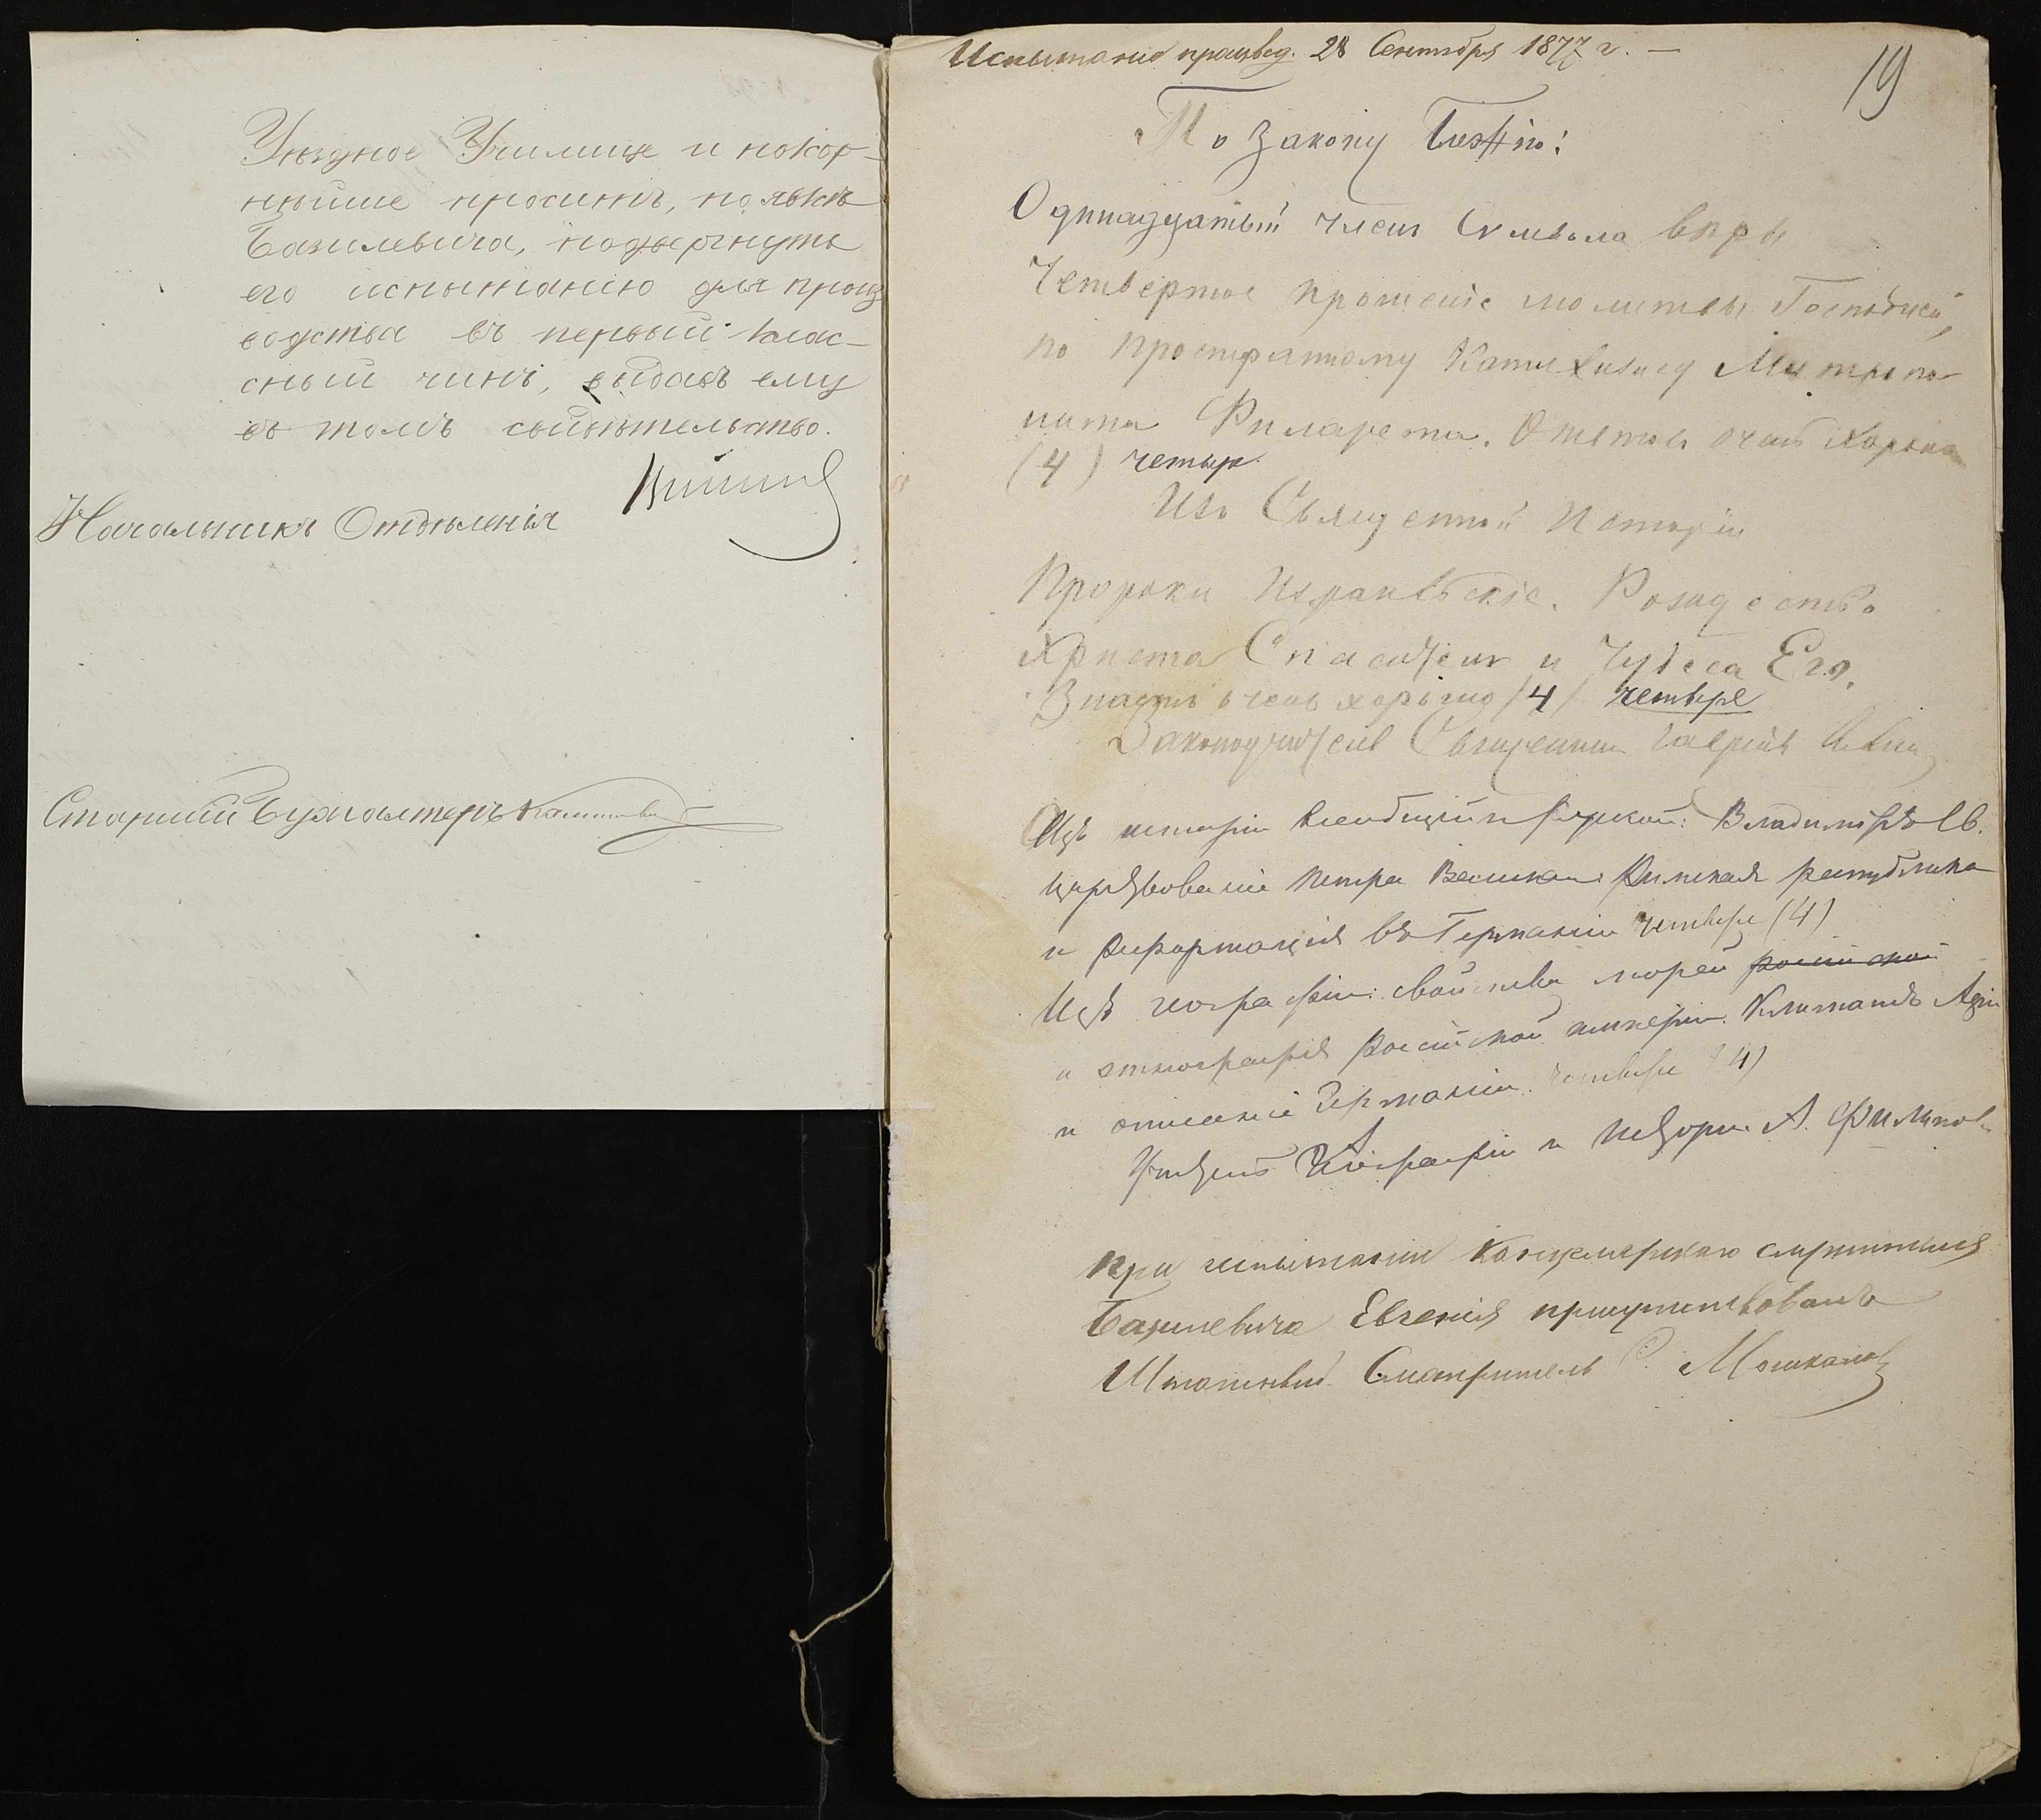 Уѣздное Училище и покор-
нѣйше проситъ, по явкѣ
Базилевича, подвергнуть
его испытанію для произ
водства въ первый клас-
сный чинъ, выдавъ ему
въ томъ свидѣтельство.
Начальникъ Отдѣленія
Старшій Бухгалтеръ
Испытаніе производ. 28 Сентября 1877 г. —
19
По Закону Божію:
Одинадцатый членъ Символа вѣры
Четвертое прошеніе молитвы Господней,
по пространному Катихизису Митропо
лита Филарета. Отвѣтъ очень хорошъ
(4) четыре.
Изъ Священной Исторіи
Пророки Израильскіе. Рождество
Христа Спасителя и Чудеса Его.
Знаетъ очень хорошо (4) четыре
Законоучитель Священникъ Гавріилъ
Изъ исторіи всеобщей и русской: Владиміръ Св.
царствованіе Петра Великаго. Римская республика
и реформація въ Германіи четыре (4)
Изъ географіи: свойства морей россійской
и этнографія Россійской имперіи. Климатъ Азіи
и описаніе Германіи. четыре (4)
Учитель Географіи и Исторіи А.
При испытаніи Канцелярскаго служителя
Базилевича Евгенія присутствовалъ
Штатный Смотритель